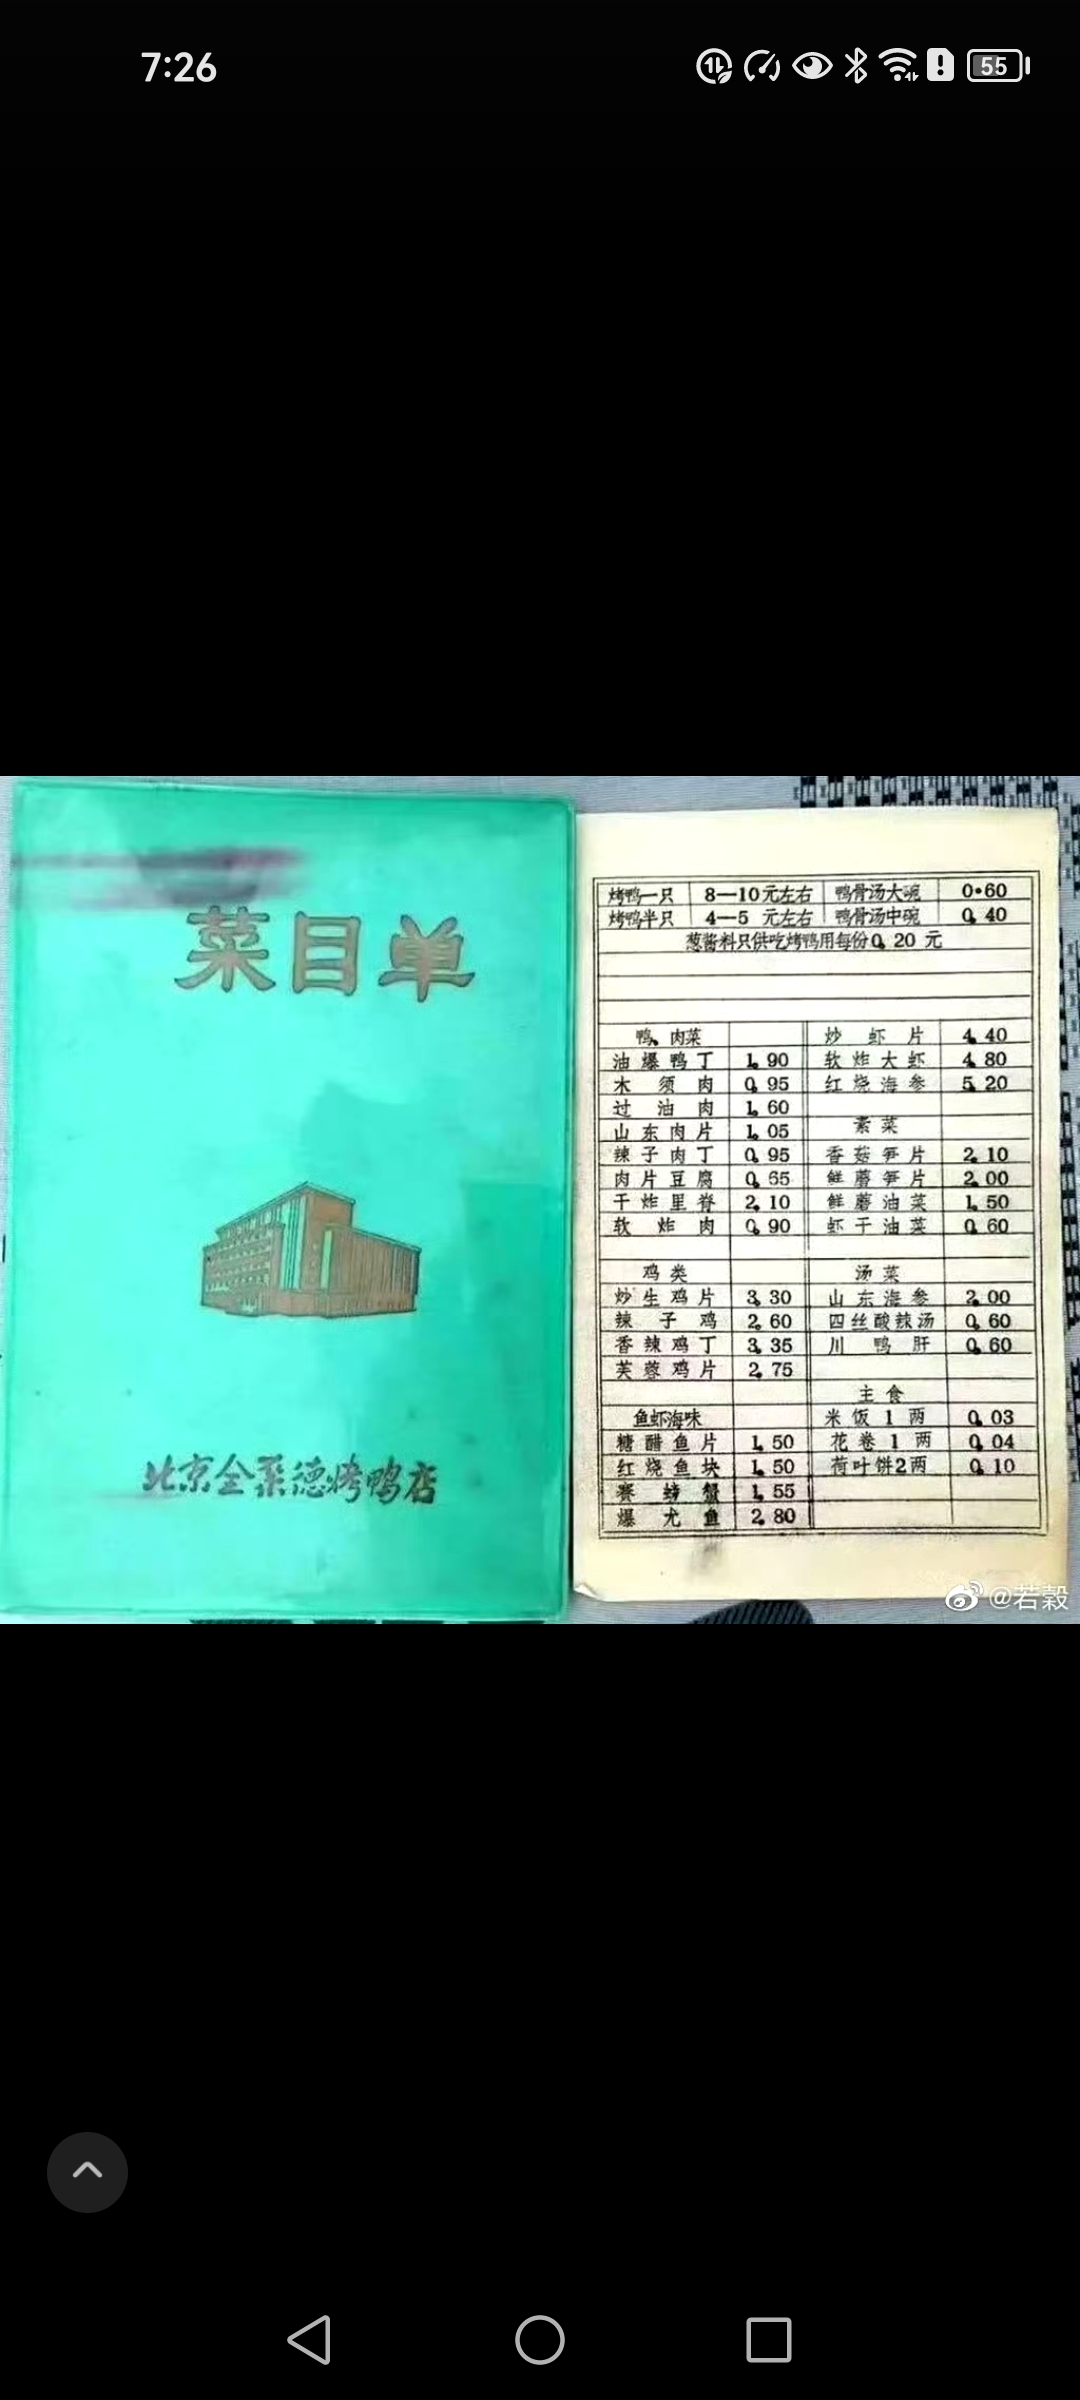 7:26
55
菜目单
北京全聚德烤鸭店
烤鸭一只 8—10元左右 鸭骨汤大碗 0.60
烤鸭半只 4—5 元左右 鸭骨汤中碗 0.40
葱酱料只供吃烤鸭用每份0.20元
鸭、肉菜
油爆鸭丁 1.90
木须肉 0.95
过油肉 1.60
山东肉片 1.05
辣子肉丁 0.95
肉片豆腐 0.65
干炸里脊 2.10
软炸肉 0.90
鸡类
炒生鸡片 3.30
辣子鸡 2.60
香辣鸡丁 3.35
芙蓉鸡片 2.75
鱼虾海味
糖醋鱼片 1.50
红烧鱼块 1.50
赛螃蟹 1.55
爆尤鱼 2.80
炒虾片 4.40
软炸大虾 4.80
红烧海参 5.20
素菜
香菇笋片 2.10
鲜蘑笋片 2.00
鲜蘑油菜 1.50
虾干油菜 0.60
汤菜
山东海参 2.00
四丝酸辣汤 0.60
川鸭肝 0.60
主食
米饭1两 0.03
花卷1两 0.04
荷叶饼2两 0.10
@若榖